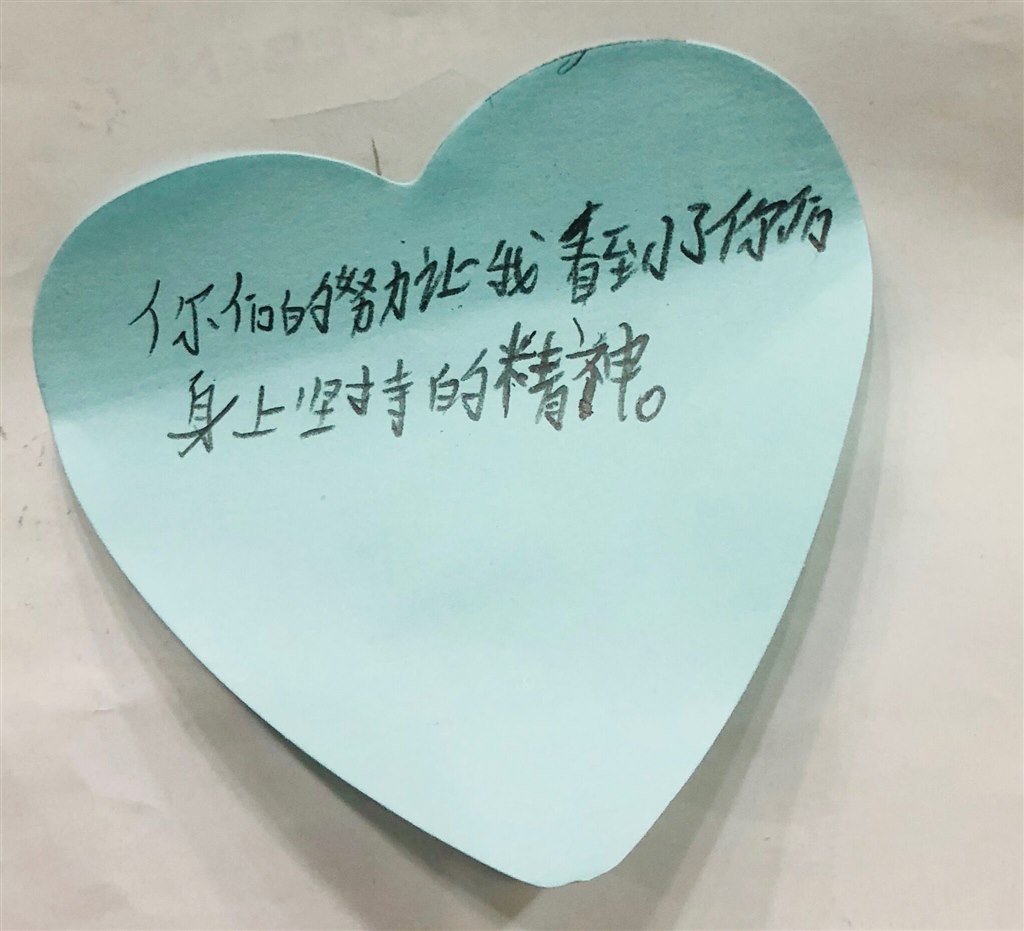 你们的努力让我看到了你们
身上坚持的精神。